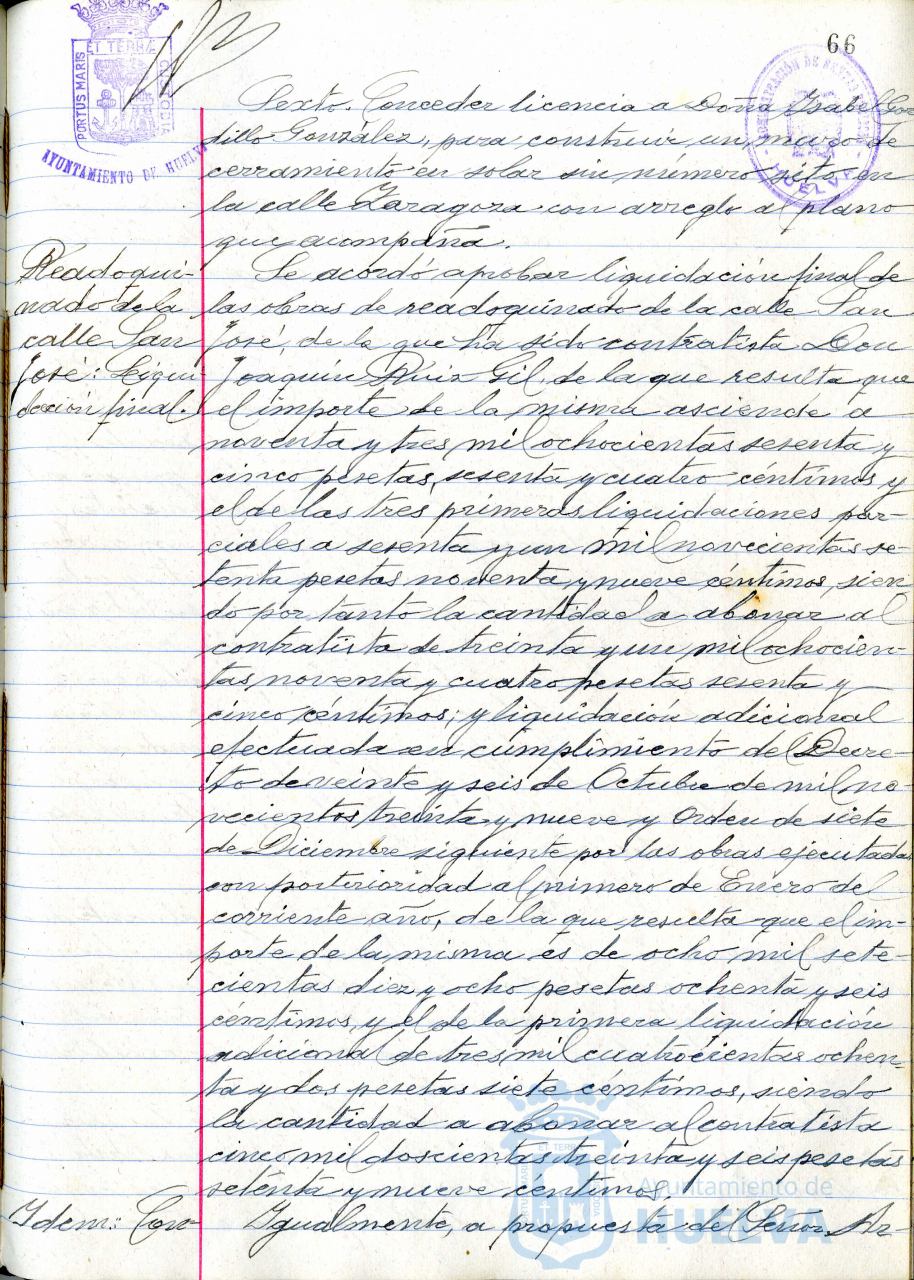 66
PORTUS MARIS ET TERRÆ CUSTODIA
AYUNTAMIENTO DE HUELVA
HUELVA
Sexto. Conceder licencia a Doña Isabel Gor-
dillo González, para construir un muro de
cerramiento en solar sin número sito en
la calle Zaragoza con arreglo al plano
que acompaña.
Readoqui-
nado de la
calle San
José: Liqui-
dación final.
Se acordó aprobar liquidación final de
las obras de readoquinado de la calle San
José, de la que ha sido contratista Don
Joaquín Ruiz Gil, de la que resulta que
el importe de la misma asciende a
noventa y tres mil ochocientas sesenta y
cinco pesetas, sesenta y cuatro céntimos y
el de las tres primeras liquidaciones par-
ciales a sesenta y un mil novecientas se-
tenta pesetas noventa y nueve céntimos, sien-
do por tanto la cantidad a abonar al
contratista de treinta y un mil ochocien-
tas noventa y cuatro pesetas sesenta y
cinco céntimos; y liquidación adicional
efectuada en cumplimiento del Decre-
to de veinte y seis de Octubre de mil no-
vecientos treinta y nueve y Orden de siete
de Diciembre siguiente por las obras ejecutadas
con posterioridad al primero de Enero del
corriente año, de la que resulta que el im-
porte de la misma es de ocho mil sete-
cientas diez y ocho pesetas ochenta y seis
céntimos y el de la primera liquidación
adicional de tres mil cuatrocientas ochen-
ta y dos pesetas siete céntimos, siendo
la cantidad a abonar al contratista
cinco mil doscientas treinta y seis pesetas
setenta y nueve centimos.
Idem: Con-
Igualmente, a propuesta del Señor Ar-
Ayuntamiento de
HUELVA